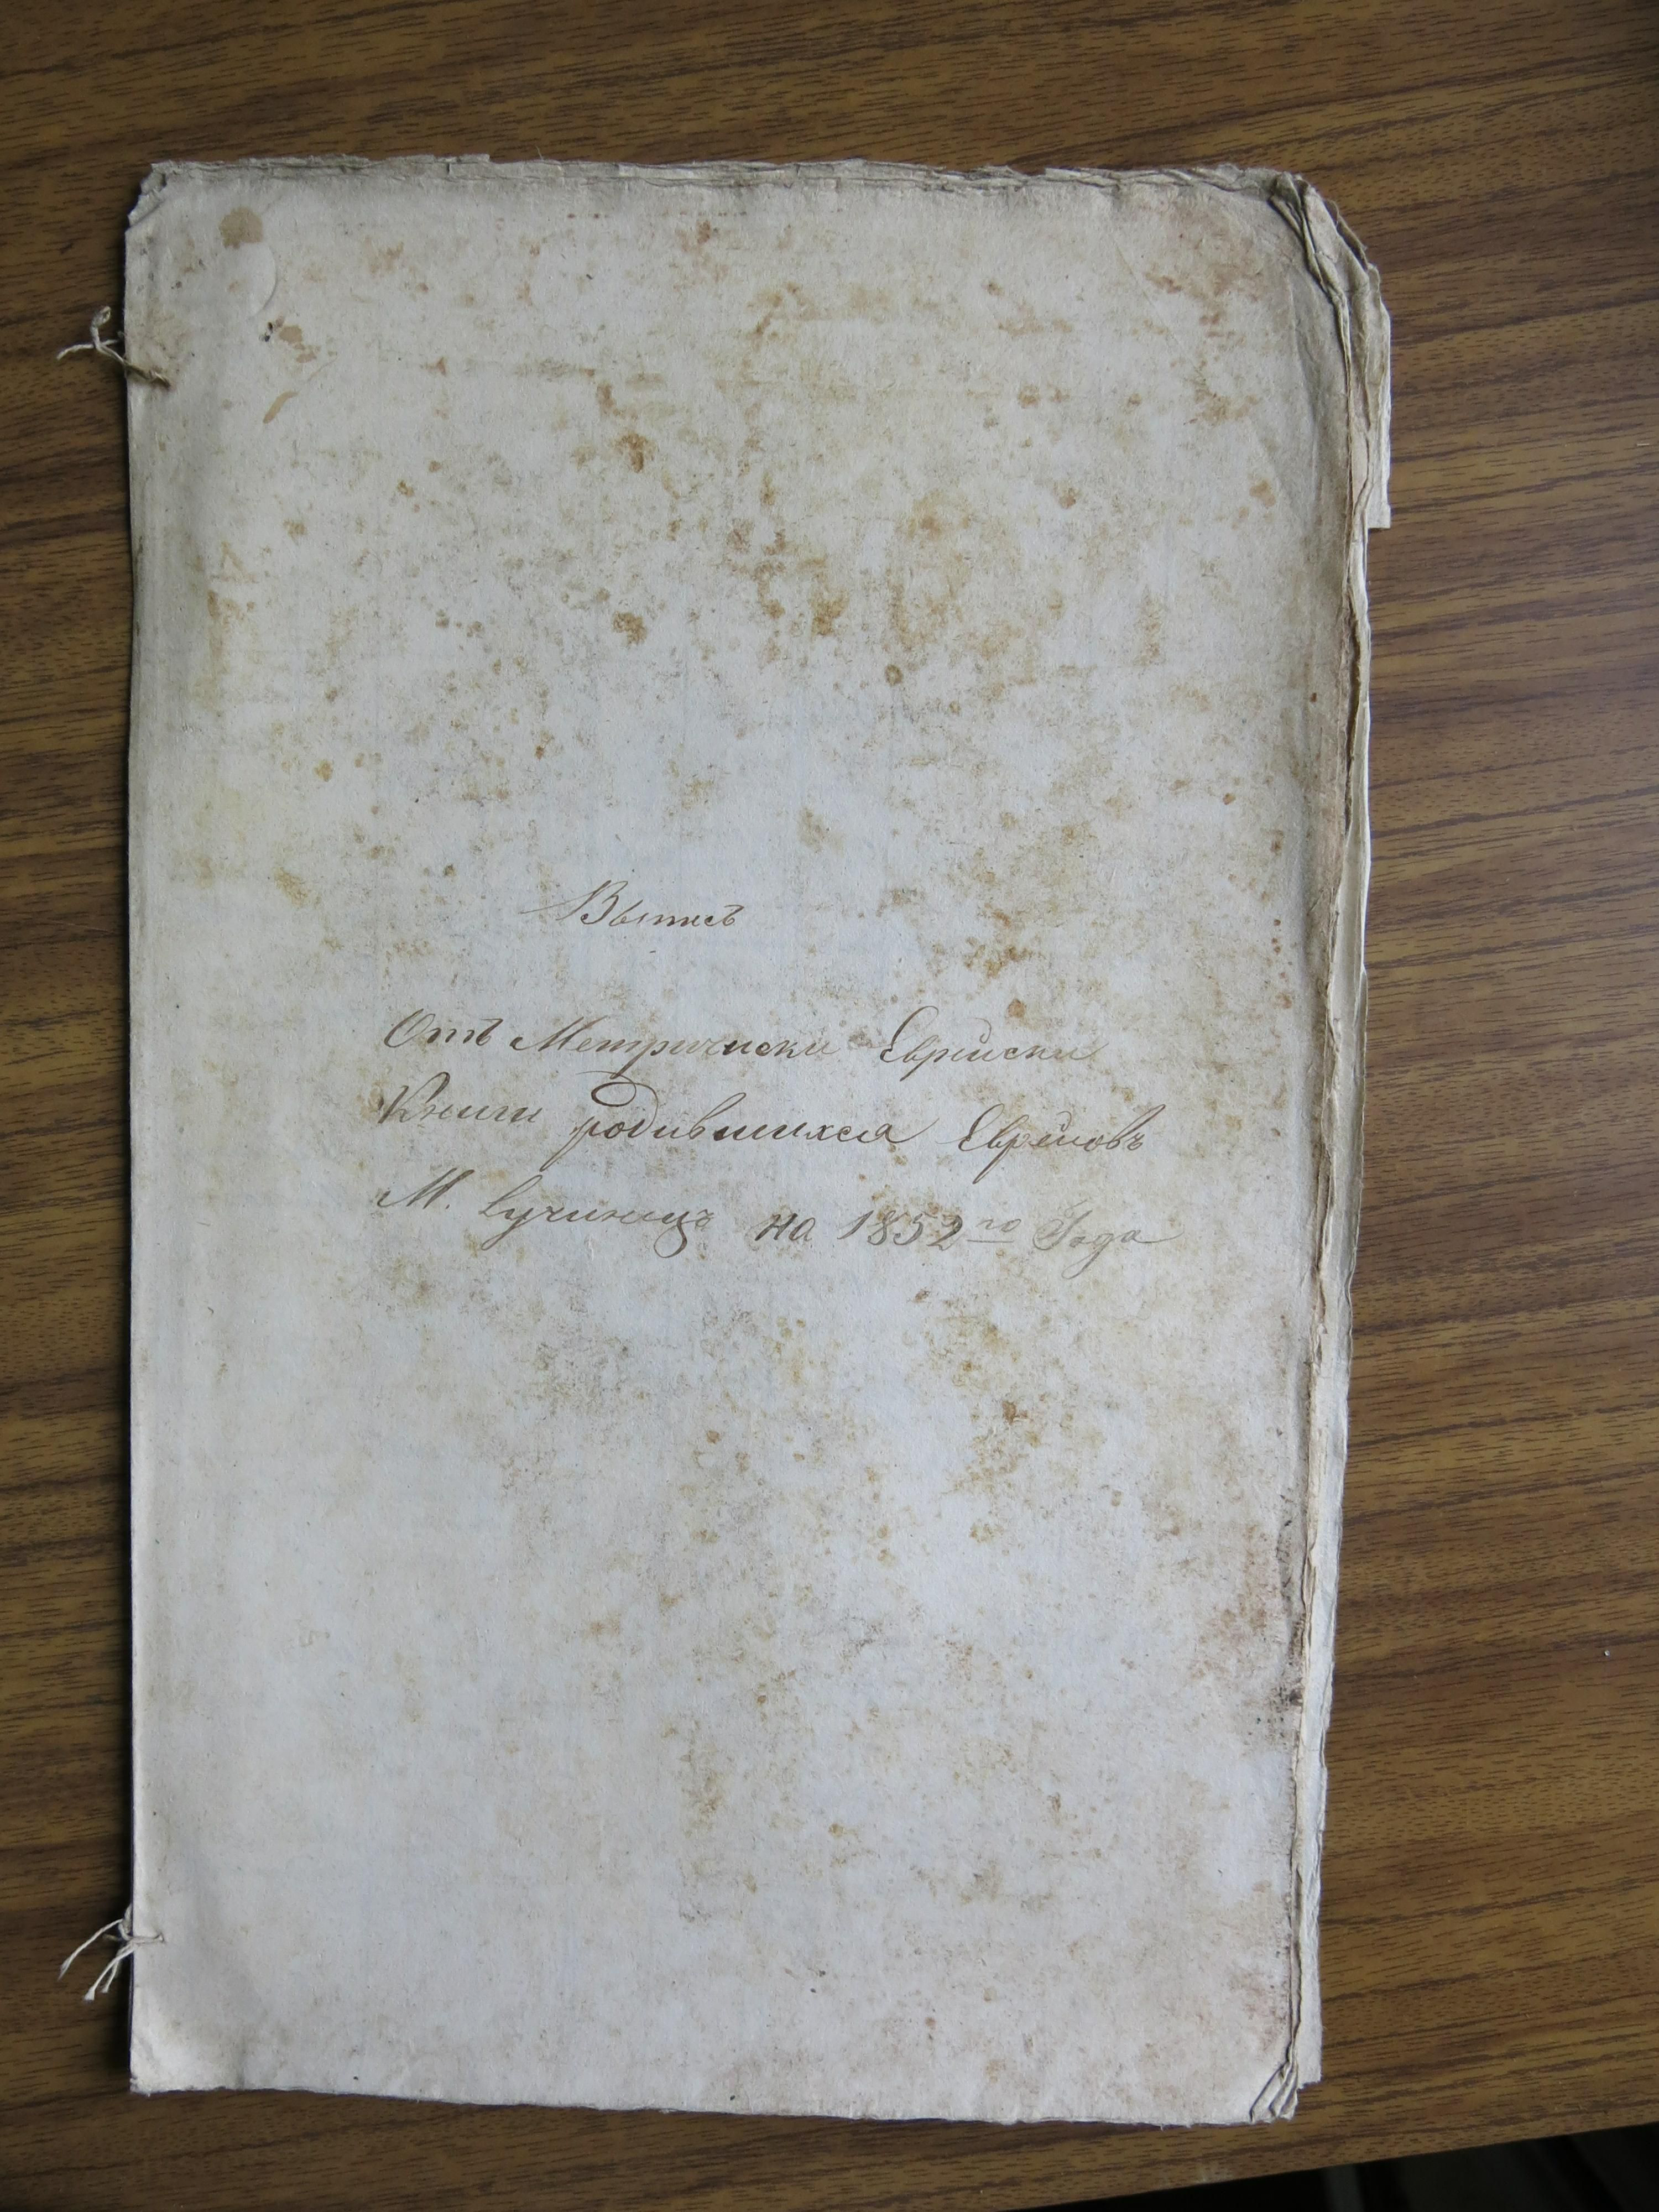 Выписъ
Отъ Метрически Еврейски
Книги родившихся Евреиовъ
М. на 1852го Года